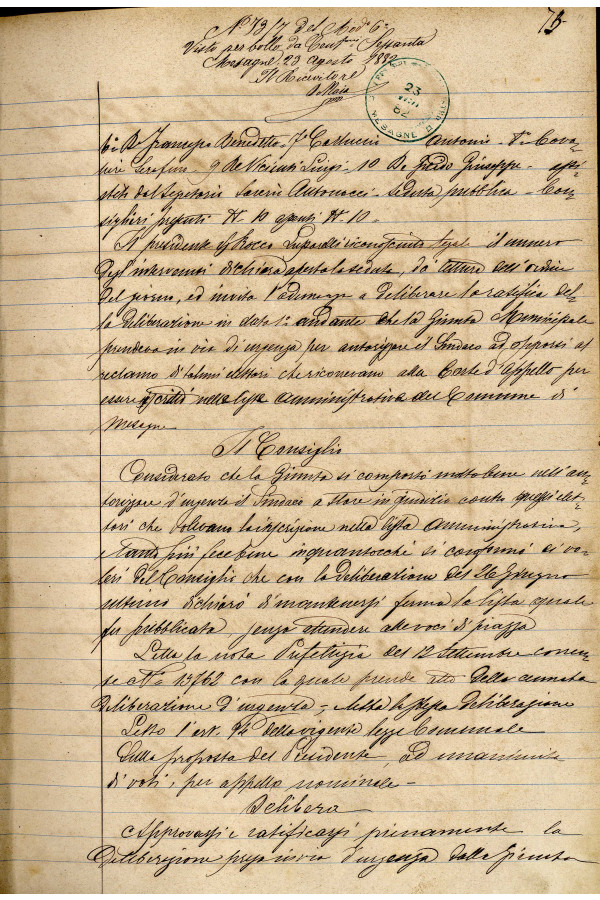 75
Nº 73/7 del Modº 6º
Visto per bollo da Centmi Sessanta
Mesagne 23 agosto 1882
Il Ricevitore
23
82
MESAGNE
6º De Francesco Benedetto - 7º Carluccio Antonio - 8º Cava-
liere Serafino - 9 De Vicinti Luigi - 10 De Guido Giuseppe - assi-
stiti dal Segretario Saverio Antonucci - Seduta pubblica - Con-
siglieri presenti Nº 10 assenti Nº 10 -
Il presidente Sig. Rocco riconosciuto legale il numero
degl'intervenuti dichiara aperta la seduta, dà lettura dell'ordine
del giorno, ed invita l'adunanza a deliberare la ratifica del-
la deliberazione in data 1º andante che la Giunta Municipale
prendeva in via di urgenza per autorizzare il Sindaco ad opporsi al
reclamo di taluni elettori che ricorrevano alla Corte d'Appello per
essere iscritti nella lista amministrativa del Comune di
Mesagne
Il Consiglio
Considerato che la Giunta si comportò molto bene nell'au-
torizzare d'urgenza il Sindaco a stare in giudizio contro quegli elet-
tori che volevano la iscrizione nella lista amministrativa,
e tanto più fece bene inquantocchè si conformò ai vo-
leri del Consiglio che con la deliberazione del 26 Giugno
ultimo dichiarò di mantenersi ferma la lista quale
fu pubblicata senza attendere alle voci di piazza
Letta la nota Prefettizia del 12 Settembre corren-
te Nº 13762 con la quale prende atto della cennata
deliberazione d'urgenza - Letta la stessa deliberazione
Letto l'art. 94 della vigente legge Comunale
Sulla proposta del Presidente, ad unanimità
di voti, per appello nominale -
Delibera
Approvarsi e ratificarsi pienamente la
deliberazione presa in via d'urgenza dalla Giunta